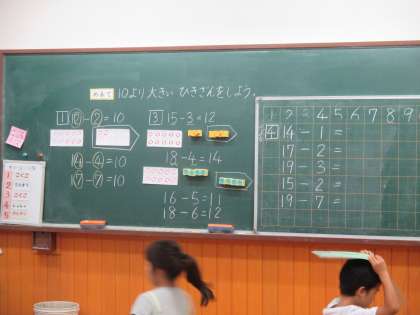 めあて 10より大きい ひきざんをしよう。
1 10-2=10
14-4=10
17-7=10
3 15-3=12
18-4=14
16-5=11
18-6=12
1 2 3 4 5 6 7 8 9
4 14-1=
17-2=
19-3=
15-2=
19-7=
1
2
3
4
5